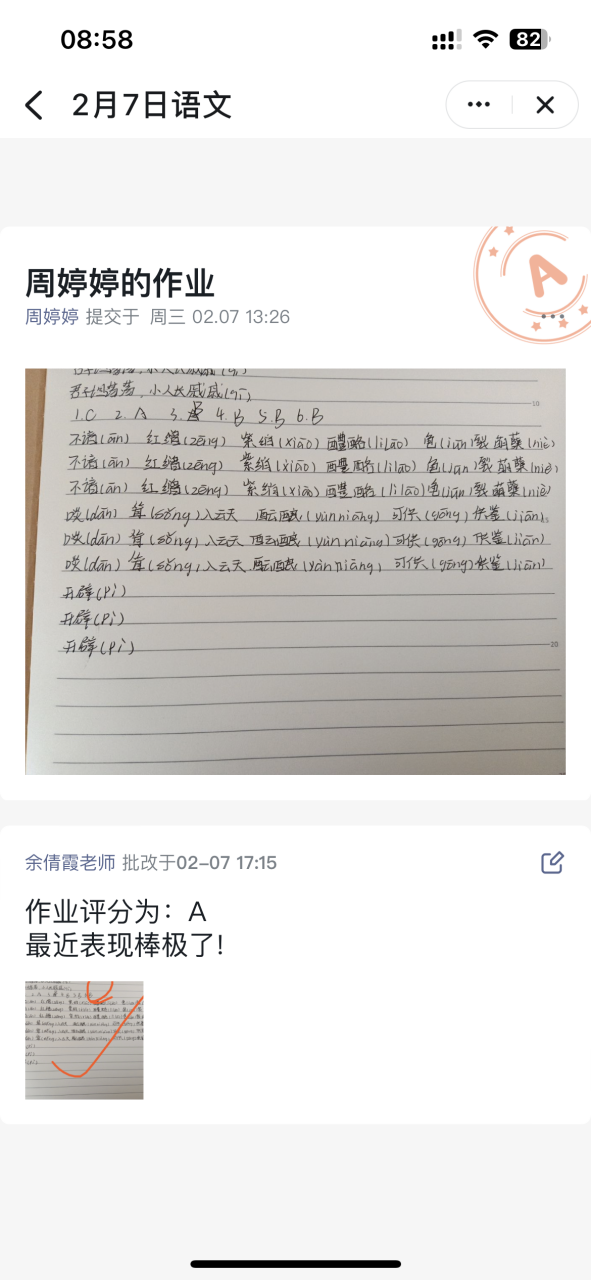 08:58
82
2月7日语文
A
周婷婷的作业
周婷婷 提交于 周三 02.07 13:26
君子坦荡荡,小人长戚戚(qī)
10
1.C 2.A 3. 4.B 5.B 6.B
不谙(ān) 红缯(zēng) 紫绡(xiāo) 醴酪(lǐlào) 龟(jūn)裂 萌蘖(niè)
不谙(ān) 红缯(zēng) 紫绡(xiāo) 醴酪(lǐlào) 龟(jūn)裂 萌蘖(niè)
不谙(ān) 红缯(zēng) 紫绡(xiāo) 醴酪(lǐlào) 龟(jūn)裂 萌蘖(niè)
啖(dàn) 耸(sǒng)入云天 酝酿(yùnniàng) 可供(gōng)借鉴(jiàn)
啖(dàn) 耸(sǒng)入云天 酝酿(yùnniàng) 可供(gōng)借鉴(jiàn)
啖(dàn) 耸(sǒng)入云天 酝酿(yùnniàng) 可供(gōng)借鉴(jiàn)
开辟(pì)
开辟(pì)
开辟(pì)
20
余倩霞老师 批改于02-07 17:15
作业评分为：A
最近表现棒极了!